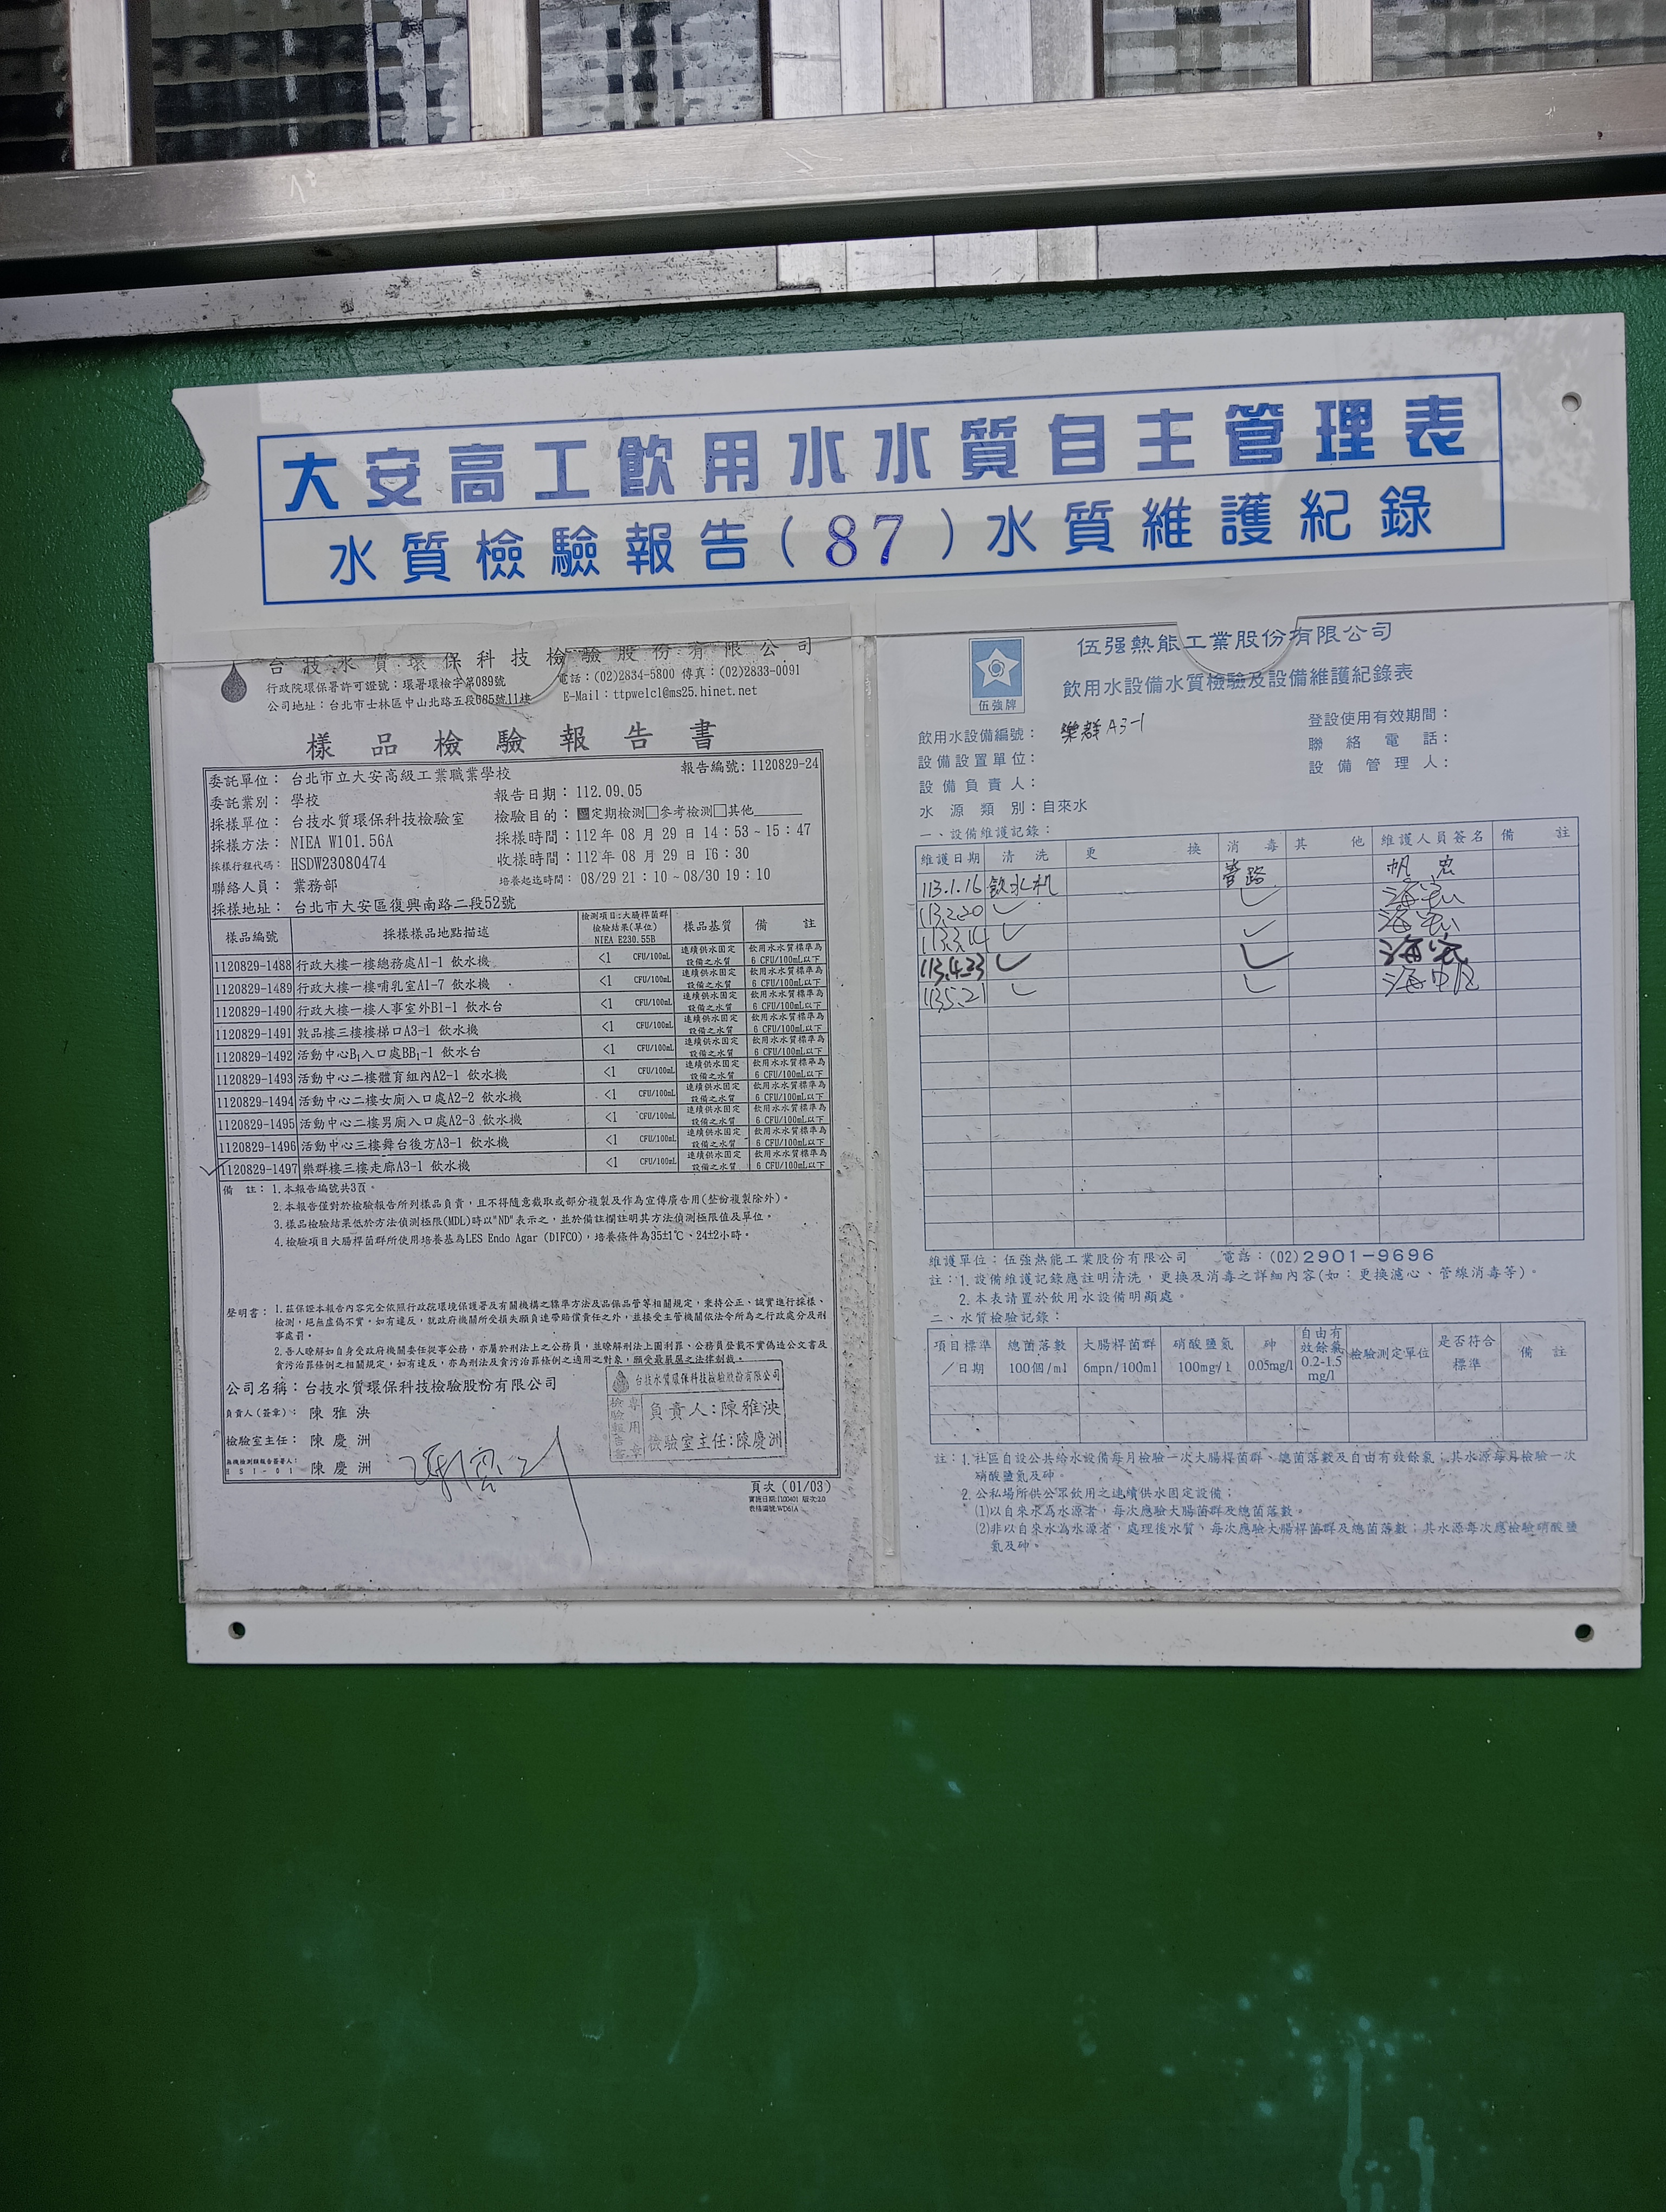 大安高工飲用水水質自主管理表
水質檢驗報告(87)水質維護紀錄
台技水質環保科技檢驗股份有限公司
行政院環保署許可證號：環署環檢字第089號
電話：(02)2834-5800 傳真：(02)2833-0091
公司地址：台北市士林區中山北路五段685號11樓
E-Mail：ttpwelcl@ms25.hinet.net
樣品檢驗報告書
委託單位：台北市立大安高級工業職業學校
報告編號：1120829-24
委託業別：學校
報告日期：112.09.05
採樣單位：台技水質環保科技檢驗室
檢驗目的：■定期檢測□參考檢測□其他
採樣方法：NIEA W101.56A
採樣時間：112年 08 月 29 日 14：53~15：47
採樣行程代碼：HSDW23080474
收樣時間：112年 08 月 29 日 16：30
聯絡人員：業務部
培養起迄時間：08/29 21：10~08/30 19：10
採樣地址：台北市大安區復興南路二段52號
樣品編號 採樣樣品地點描述 檢測項目：大腸桿菌群 檢驗結果(單位) NIEA E230.55B 樣品基質 備註
1120829-1488 行政大樓一樓總務處A1-1 飲水機 <1 CFU/100mL 連續供水固定設備之水質 飲用水水質標準為6 CFU/100mL以下
1120829-1489 行政大樓一樓哺乳室A1-7 飲水機 <1 CFU/100mL 連續供水固定設備之水質 飲用水水質標準為6 CFU/100mL以下
1120829-1490 行政大樓一樓人事室外B1-1 飲水台 <1 CFU/100mL 連續供水固定設備之水質 飲用水水質標準為6 CFU/100mL以下
1120829-1491 敦品樓三樓樓梯口A3-1 飲水機 <1 CFU/100mL 連續供水固定設備之水質 飲用水水質標準為6 CFU/100mL以下
1120829-1492 活動中心B1入口處BB1-1 飲水台 <1 CFU/100mL 連續供水固定設備之水質 飲用水水質標準為6 CFU/100mL以下
1120829-1493 活動中心二樓體育組內A2-1 飲水機 <1 CFU/100mL 連續供水固定設備之水質 飲用水水質標準為6 CFU/100mL以下
1120829-1494 活動中心二樓女廁入口處A2-2 飲水機 <1 CFU/100mL 連續供水固定設備之水質 飲用水水質標準為6 CFU/100mL以下
1120829-1495 活動中心二樓男廁入口處A2-3 飲水機 <1 CFU/100mL 連續供水固定設備之水質 飲用水水質標準為6 CFU/100mL以下
1120829-1496 活動中心三樓舞台後方A3-1 飲水機 <1 CFU/100mL 連續供水固定設備之水質 飲用水水質標準為6 CFU/100mL以下
1120829-1497 樂群樓三樓走廊A3-1 飲水機 <1 CFU/100mL 連續供水固定設備之水質 飲用水水質標準為6 CFU/100mL以下
備註：1.本報告編號共3頁。
2.本報告僅對於檢驗報告所列樣品負責，且不得隨意截取或部分複製及作為宣傳廣告用(整份複製除外)。
3.樣品檢驗結果低於方法偵測極限(MDL)時以"ND"表示之，並於備註欄註明其方法偵測極限值及單位。
4.檢驗項目大腸桿菌群所使用培養基為LES Endo Agar (DIFCO)，培養條件為35±1℃、24±2小時。
聲明書：1.茲保證本報告內容完全依照行政院環境保護署及有關機構之標準方法及品保品管等相關規定，秉持公正、誠實進行採樣、
檢測，絕無虛偽不實。如有違反，就政府機關所受損失願負連帶賠償責任之外，並接受主管機關依法令所為之行政處分及刑
事處罰。
2.吾人瞭解如自身受政府機關委任從事公務，亦屬於刑法上之公務員，並瞭解刑法上圖利罪、公務員登載不實偽造公文書及
貪污治罪條例之相關規定，如有違反，亦為刑法及貪污治罪條例之適用之對象，願受最嚴厲之法律制裁。
公司名稱：台技水質環保科技檢驗股份有限公司
負責人(簽章)：陳雅泱
檢驗室主任：陳慶洲
無機檢測類報告簽署人：
HSI-01 陳慶洲
台技水質環保科技檢驗股份有限公司
檢驗報告書專用章
負責人：陳雅泱
檢驗室主任：陳慶洲
頁次 (01/03)
實施日期：1100401 版次：2.0
表格編號：WD61A
伍強牌
伍強熱能工業股份有限公司
飲用水設備水質檢驗及設備維護紀錄表
飲用水設備編號：樂群A3-1
登設使用有效期間：
設備設置單位：
聯絡電話：
設備負責人：
設備管理人：
水源類別：自來水
一、設備維護記錄：
維護日期 清洗 更換 消毒 其他 維護人員簽名 備註
113.1.16 飲水机 管路
113.2.20 ✓ ✓
113.3.14 ✓ ✓
113.4.23 ✓ ✓
113.5.21 ✓ ✓
維護單位：伍強熱能工業股份有限公司 電話：(02)2901-9696
註：1.設備維護記錄應註明清洗，更換及消毒之詳細內容(如：更換濾心、管線消毒等)。
2.本表請置於飲用水設備明顯處。
二、水質檢驗記錄：
項目標準／日期 總菌落數 100個/ml 大腸桿菌群 6mpn/100ml 硝酸鹽氮 100mg/l 砷 0.05mg/l 自由有效餘氯 0.2-1.5 mg/l 檢驗測定單位 是否符合標準 備註
註：1.社區自設公共給水設備每月檢驗一次大腸桿菌群、總菌落數及自由有效餘氯；其水源每月檢驗一次
硝酸鹽氮及砷。
2.公私場所供公眾飲用之連續供水固定設備；
(1)以自來水為水源者，每次應驗大腸菌群及總菌落數。
(2)非以自來水為水源者，處理後水質，每次應驗大腸桿菌群及總菌落數；其水源每次應檢驗硝酸鹽
氮及砷。